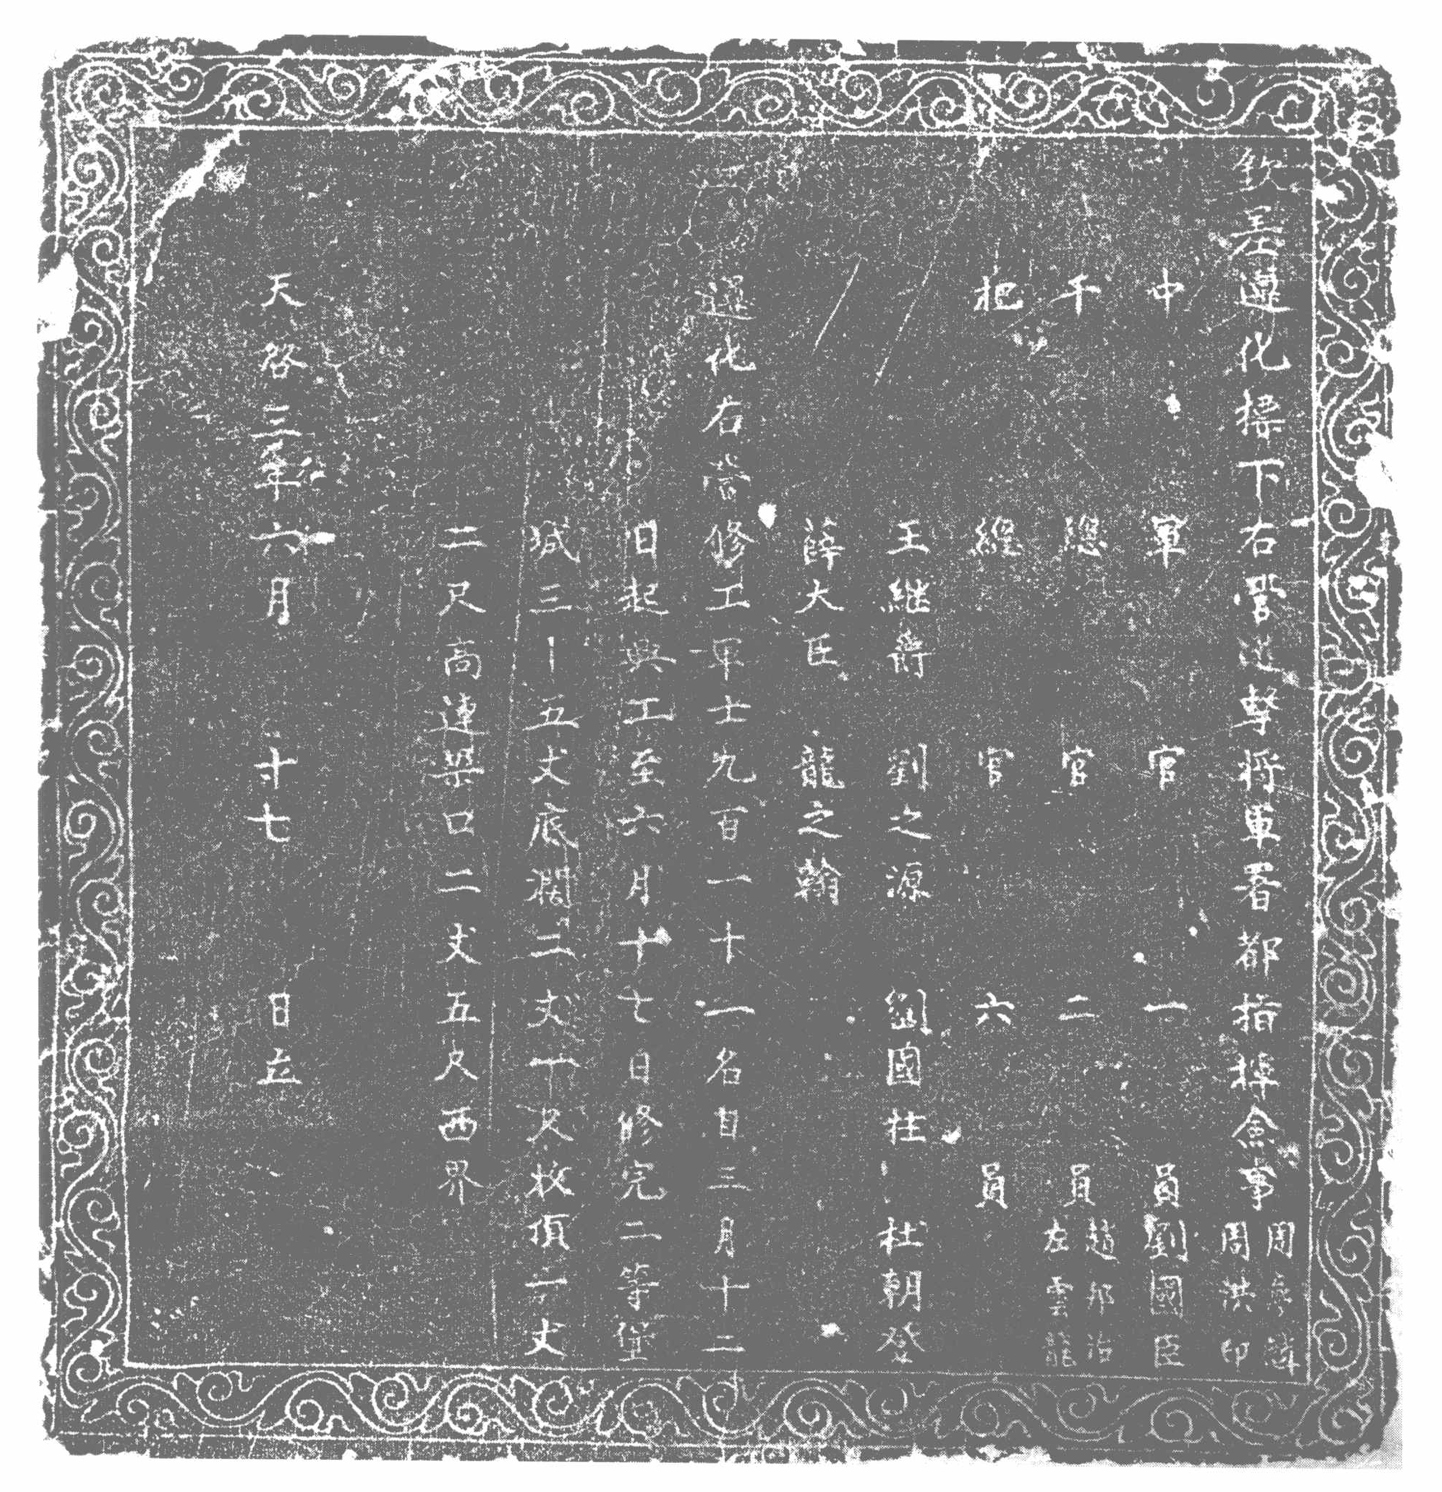 欽差遵化標下右營遊擊將軍署都指揮僉事周
周洪印
中軍官一員劉國臣
千總官二員趙邦治
左雲龍
把總官六員
王继爵 劉之源 劉国柱 杜朝登
薛大臣 龍之翰
遵化右营修工軍士九百一十一名自三月十二
日起興工至六月十七日修完二等堡
城三十五丈底濶二丈一尺收頂一丈
二尺高連垛口二丈五尺西界
天啓三年六月十七日立